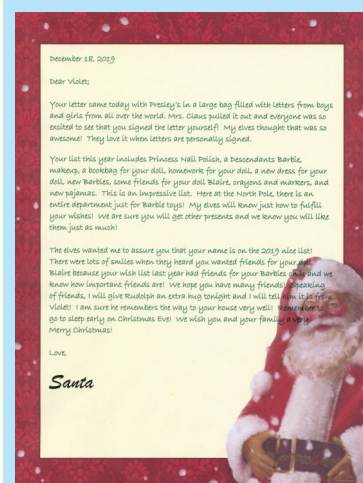 December 18, 2019
Dear Violet;
Your letter came today with Presley's in a large bag filled with letters from boys
and girls from all over the world. Mrs. Claus pulled it out and everyone was so
excited to see that you signed the letter yourself! My elves thought that was so
awesome! They love it when letters are personally signed.
Your list this year includes Princess Nail Polish, a Descendants Barbie,
makeup, a bookbag for your doll, homework for your doll, a new dress for your
doll, new Barbies, some friends for your doll Blaire, crayons and markers, and
new pajamas. This is an impressive list. Here at the North Pole, there is an
entire department just for Barbie toys! My elves will know just how to fulfill
your wishes! We are sure you will get other presents and we know you will like
them just as much!
The elves wanted me to assure you that your name is on the 2019 nice list!
There were lots of smiles when they heard you wanted friends for your doll
Blaire because your wish list last year had friends for your Barbies on it and we
know how important friends are! We hope you have many friends! Speaking
of friends, I will give Rudolph an extra hug tonight and I will tell him it is from
Violet! I am sure he remembers the way to your house very well! Remember to
go to sleep early on Christmas Eve! We wish you and your family a very
Merry Christmas!
Love,
Santa